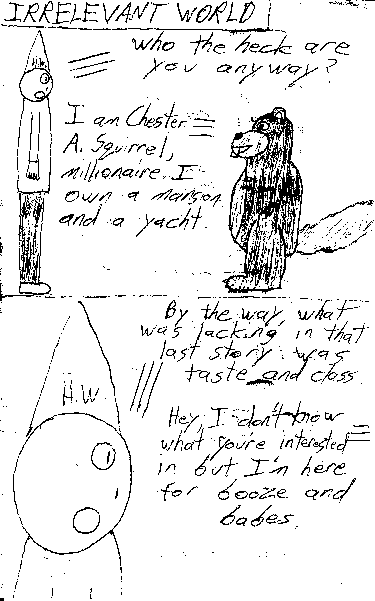 IRRELEVANT WORLD
who the heck are
you anyway?
I am Chester
A. Squirrel,
millionaire. I
own a mansion
and a yacht.
By the way, what
was lacking in that
last story was
taste and class
H.W.
Hey, I don't know
what you're interested
in but I'm here
for booze and
babes.